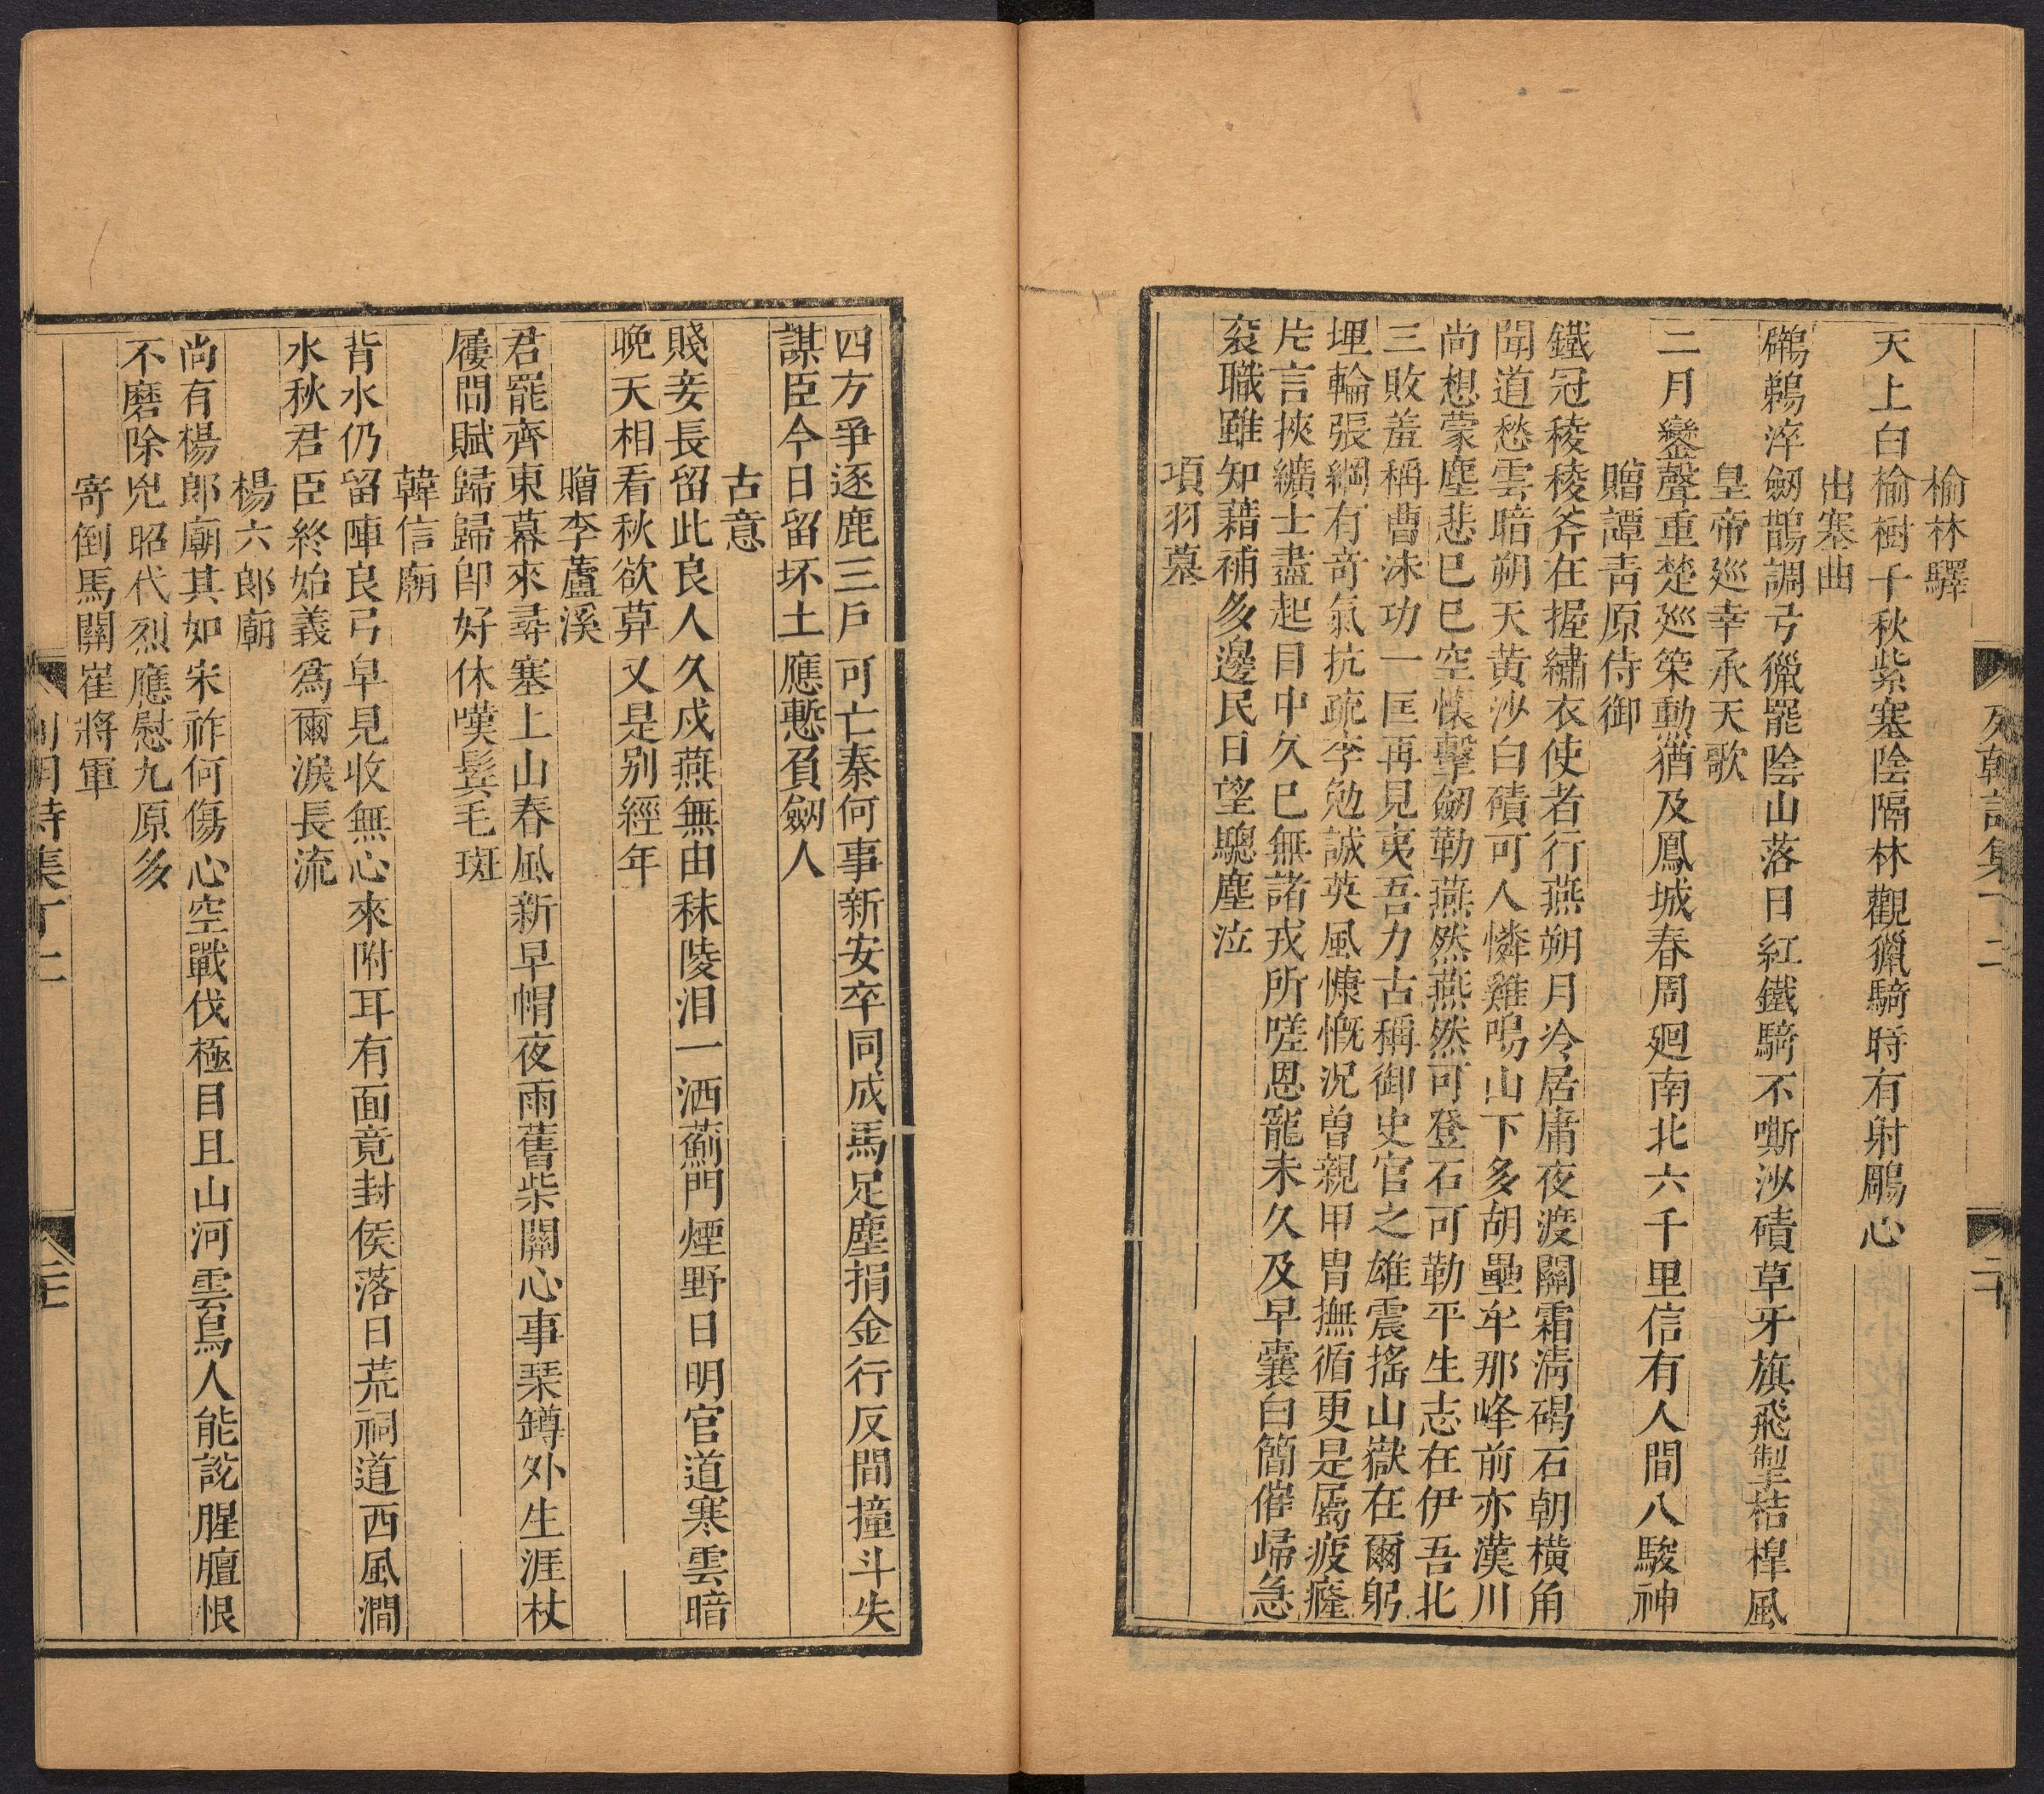 榆林驛
天上白榆樹千秋紫塞陰隔林觀獵騎時有射鵰心
出塞曲
鸊鵜淬劒鵲調弓獵罷陰山落日紅鐵騎不嘶沙磧草牙旗飛掣桔槹風
皇帝廵幸承天歌
二月鑾聲重楚廵筞勳猶及鳳城春周廻南北六千里信有人間八駿神
贈譚靑原侍御
鐵冠稜稜斧在握繡衣使者行燕朔月冷居庸夜渡關霜淸碣石朝橫角
聞道愁雲暗朔天黄沙白磧可人憐雞鳴山下多胡壘牟那峰前亦漢川
尚想蒙塵悲巳巳空懐擊劒勒燕然燕然可登石可勒平生志在伊吾北
三敗羞稱曹沬功一匡再見夷吾力古稱御史官之雄震搖山嶽在爾躬
埋輪張綱有竒氣抗疏李勉誠英風慷慨況曽親甲胄撫循更是屬疲癃
片言挾纊士盡起目中久巳無諸戎所嗟恩寵未久及早囊白簡催歸急
衮職雖知藉補多邊民日望驄塵泣
項羽墓
四方爭逐鹿三戶可亡秦何事新安卒同成馬足塵捐金行反間撞斗失
謀臣今日留坏土應慙負劒人
古意
賤妾長留此良人久戍燕無由秣陵泪一洒薊門煙野日明官道寒雲暗
晚天相看秋欲莫又是别經年
贈李蘆溪
君罷齊東幕來尋塞上山春風新早帽夜雨舊柴關心事琹罇外生涯杖
屨間賦歸歸卽好休嘆鬂毛斑
韓信廟
背水仍留陣良弓早見收無心來附耳有面竟封侯落日荒祠道西風澗
水秋君臣終始義爲爾淚長流
楊六郎廟
尚有楊郎廟其如宋祚何傷心空戰伐極目且山河雲鳥人能說腥膻恨
不磨除兇昭代烈應慰九原多
寄倒馬關崔將軍
列朝詩集丁二
二十